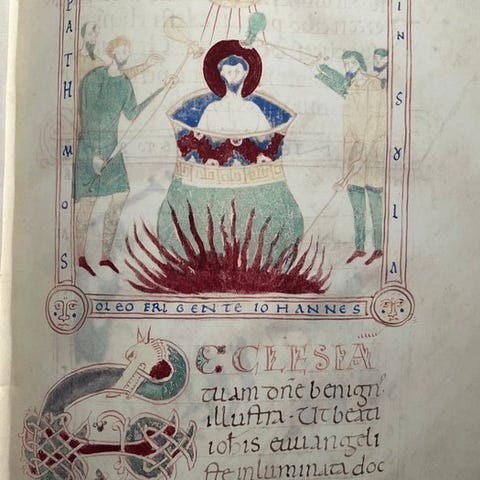 PATHMOS
INSULA
OLEO FRIGENTE IOHANNES
ECCLESIA
tuam dñe benign᾿
illustra · Ut beati
ioh̄is euuangeli
ste inluminata doc